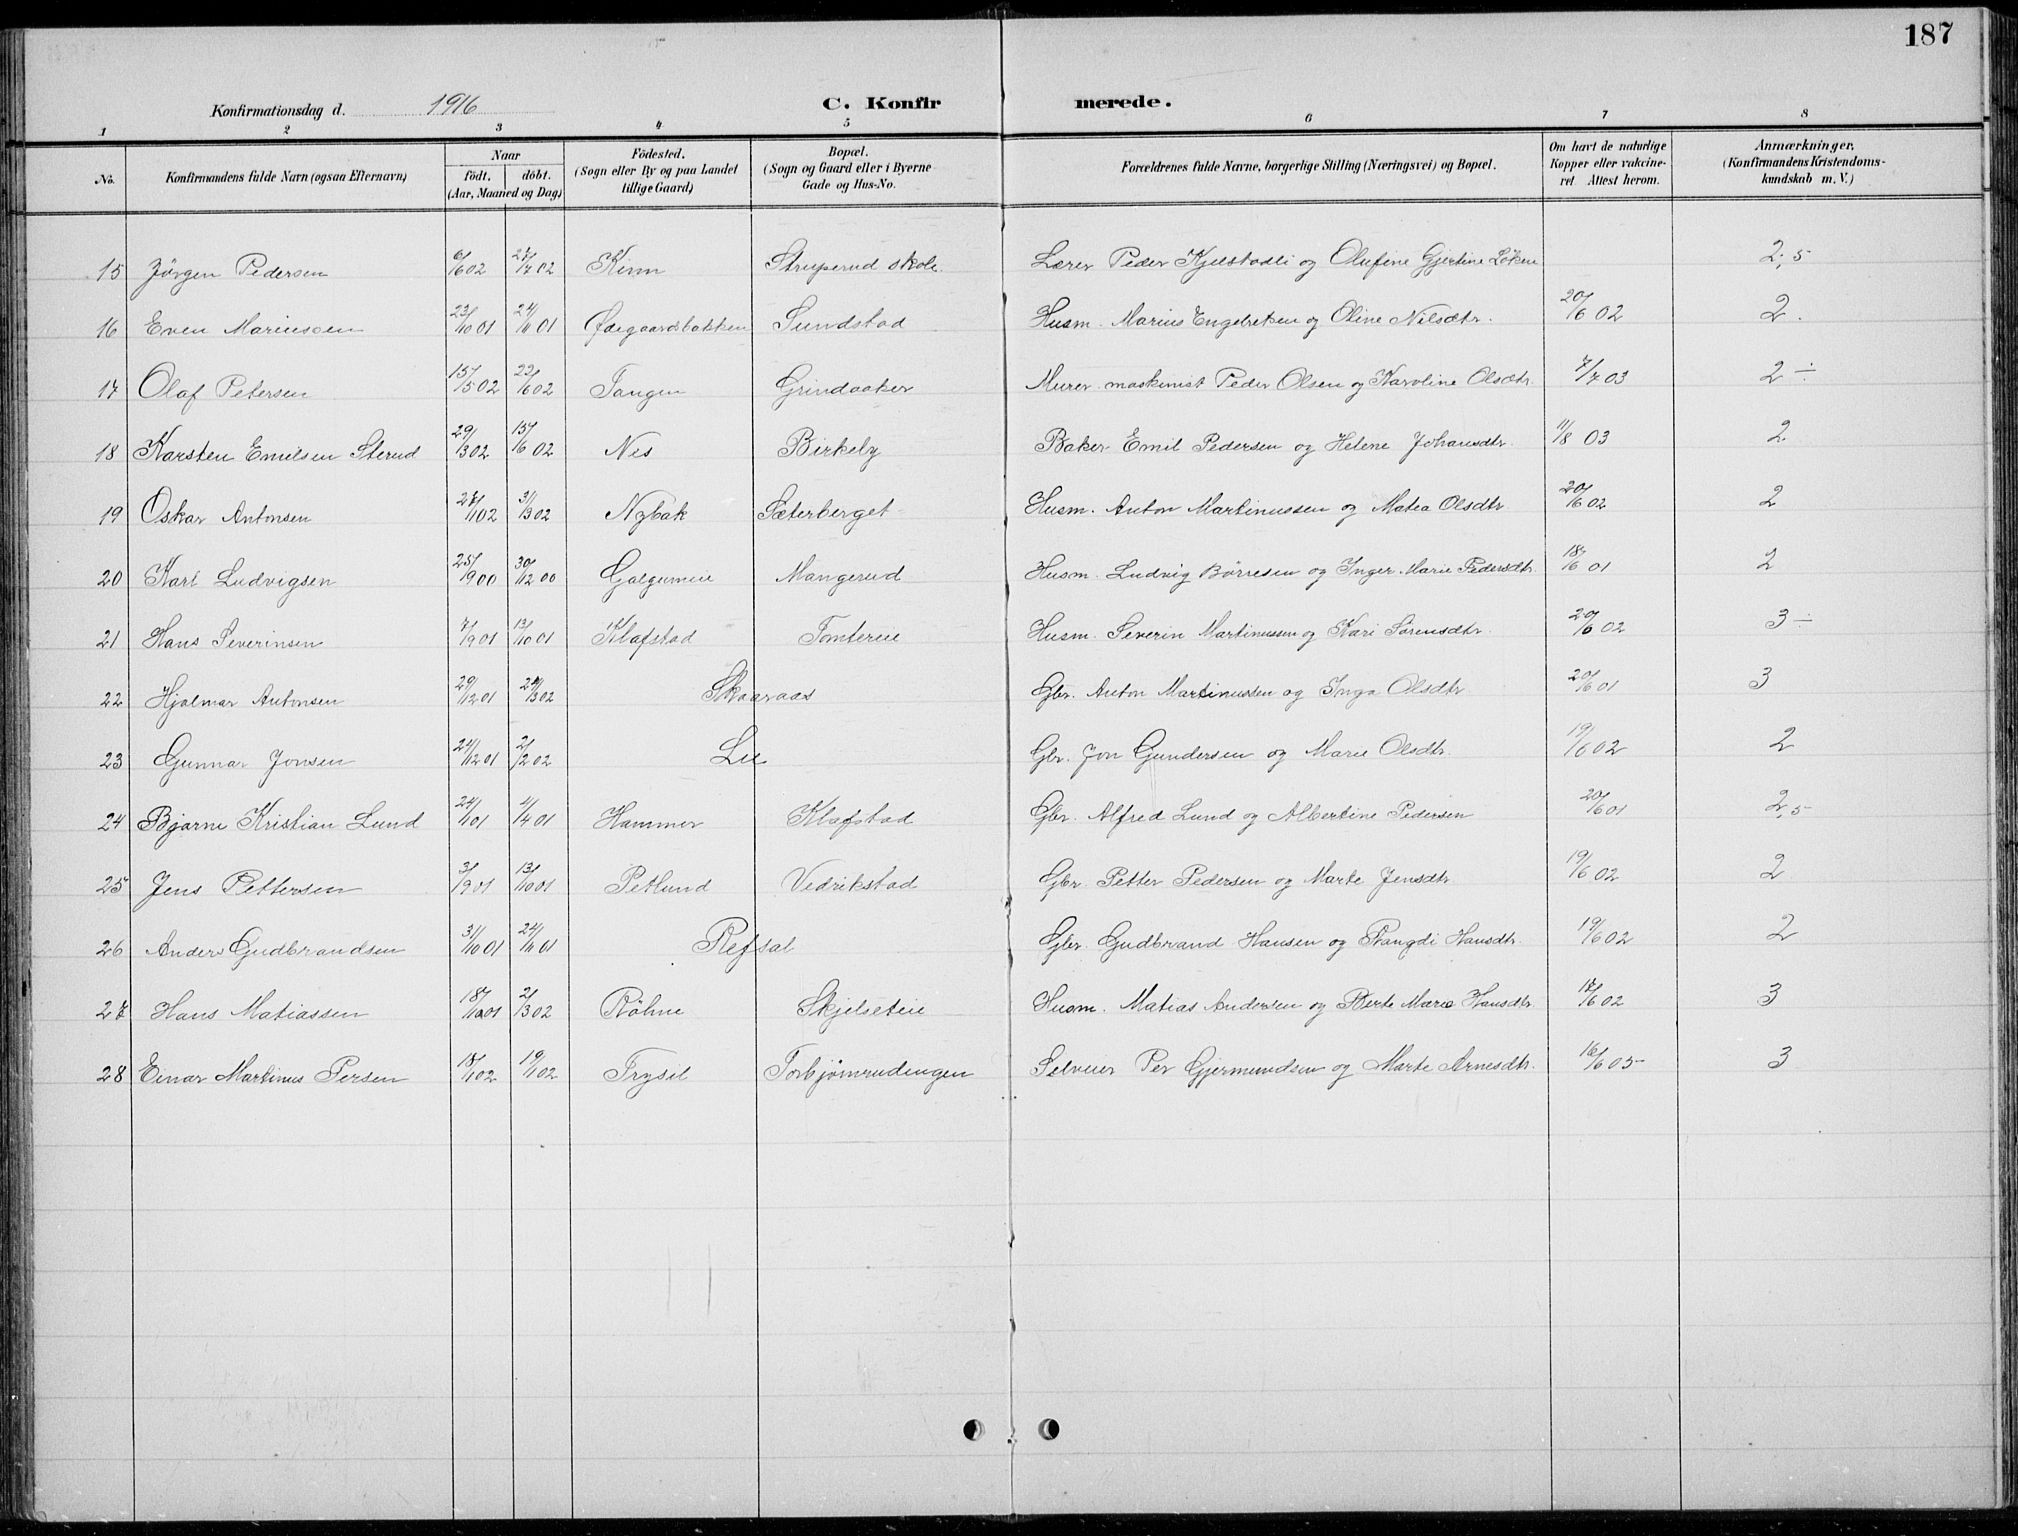 187
Konfirmationsdag d. 1916 C. Konfirmerede.
1 2 3 4 5 6 7 8
No. Konfirmandens fulde Navn (ogsaa Efternavn) Naar födt. döbt. (Aar, Maaned og Dag) Födested. (Sogn eller By og paa Landet tillige Gaard) Bopæl. (Sogn og Gaard eller i Byerne Gade og Hus-No. Forældrenes fulde Navne, borgerlige Stilling (Næringsvei) og Bopæl. Om havt de naturlige Kopper eller vakcineret Attest herom. Anmærkninger, (Konfirmandens Kristendomskundskab m. V.)
15 Jörgen Pedersen 6/6 02 27/7 02 Kinn Struperud skole. Lærer Peder Kjelstadli og Olufine Gjertine Löken 2,5
16 Even Mariussen 23/10 01 24/11 01 Ødegaardsbakken Sundstad Husm. Marius Engebretsen og Oline Nilsdtr. 20/6 02 2.
17 Olaf Petersen 15/5 02 22/6 02 Tangen Grindaaker Murer maskinist Peder Olsen og Karoline Olsdtr. 7/7 03 2 ÷
18 Karsten Emilsen Sterud 29/3 02 15/6 02 Nes Birkeby Baker Emil Pedersen og Helene Johansdtr. 11/8 03 2
19 Oskar Antonsen 27/1 02 31/3 02 Nybak Sæterberget Husm. Anton Martinussen og Matea Olsdtr 20/6 02 2
20 Karl Ludvigsen 25/9 00 30/12 00 Galgumeie Mangerud Husm. Ludvig Börresen og Inger Marie Pedersdtr. 18/6 01 2
21 Hans Severinsen 7/9 01 13/10 01 Klafstad Tomtereie Husm. Severin Martinussen og Kari Sörensdtr. 20/6 02 3 ÷
22 Hjalmar Antonsen 29/12 01 Skaaraas Gbr. Anton Martinussen og Inga Olsdtr 20/6 01 3
23 Gunnar Jonsen 24/12 01 2/2 02 Lie Gbr. Jon Gundersen og Marie Olsdtr. 19/6 02 2
24 Bjarne Kristian Lund 24/1 01 4/4 01 Hammer Klafstad Gbr. Alfred Lund og Albertine Pedersen 20/6 01 2,5
25 Jens Pettersen 3/9 01 13/10 01 Petlund Vedrikstad Gbr. Petter Pedersen og Marte Jensdtr 19/6 02 2
26 Anders Gudbrandsen 31/10 01 24/11 01 Refsal Gbr. Gudbrand Hansen og Rangdi Hansdtr. 19/6 02 2
27 Hans Matiassen 2/3 02 Röhne Skjelseteie Husm. Matias Andersen og Berte Marie Hansdtr. 17/6 02 3
28 Einar Martinus Persen 19/1 02 Trysil Torbjörnrudengen Selveier Per Gjermundsen og Marte Arnesdtr. 16/6 05 3